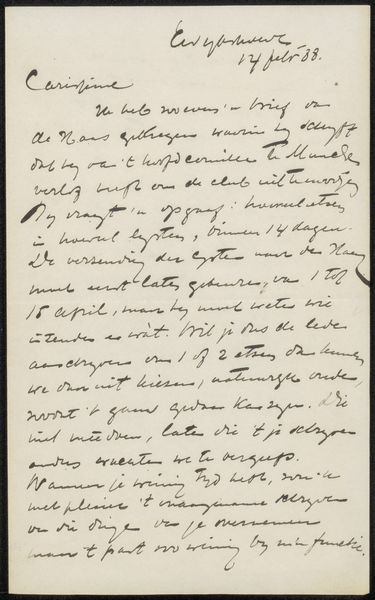 14 febr 88.
Carissime
Ik heb zoeven 'n brief van
de Haas gekregen waarin hij schrijft
dat hij van 't hoofdcomitee te Munchen
verlof heeft om de club uit te noodigen
Hij vraagt 'n opgaaf: hoeveel etsen
in hoeveel lijsten, binnen 14 dagen.
De verzending der lijsten naar den Haag
moet eerst later gebeuren, van 1 tot
15 april, maar hij moet weten wie
inzenden en wat. Wil je dus de leden
aanschrijven om 1 of 2 etsen dan kunnen
we daar uit kiezen, natuurlijk oude,
zooiets 't gauw gedaan kan zijn. Die
niet meedoen, laten die 't je schrijven
anders wachten we te vergeefs.
Wanneer je weinig tyd hebt, zou ik
met pleizier 't onaangename schrijven
over die dingen van je overnemen
maar 't past zoo weinig bij mijn functie.